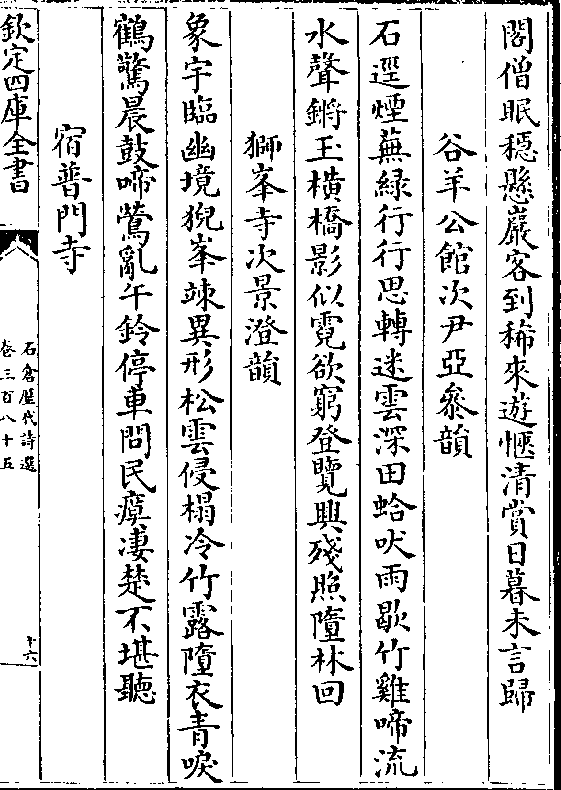 閣僧眠穏懸巖客到稀來遊愜清賞日暮未言歸
谷羊公館次尹亞叅韻
石逕煙蕪緑行行思轉迷雲深田蛤吠雨歇竹雞啼流
水聲鏘玉橫橋影似霓欲窮登覽興殘照墮林回
獅峯寺次景澄韻
象宇臨幽境猊峯竦異形松雲侵榻冷竹露墮衣青唳
鶴驚晨鼓啼鶯亂午鈴停車問民瘼凄楚不堪聽
宿普門寺
欽定四庫全書
石倉歴代詩選
卷三百八十五
十六